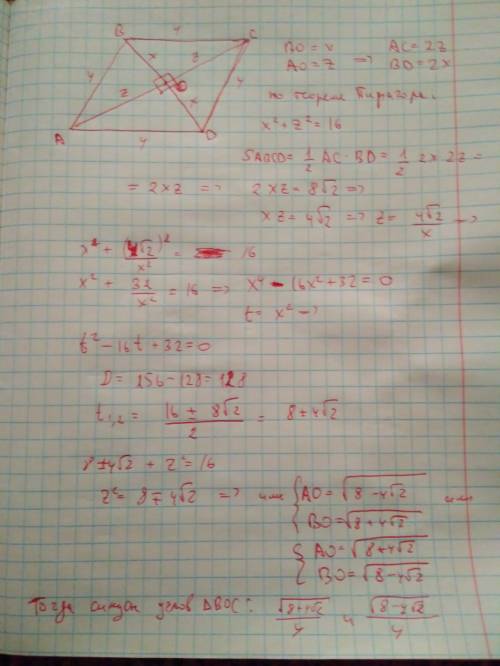 B 4 C
BO = x => AC = 2z
AO = z BD = 2x
x z
4 4
z O x
A 4 D
по теореме Пифагора:
x² + z² = 16
SABCD = 1/2 AC · BD = 1/2 2x 2z =
= 2xz => 2xz = 8√2 =>
xz = 4√2 => z = 4√2/x =>
x² + (4√2)²/x² = 16
x² + 32/x² = 16 => x⁴ - 16x² + 32 = 0
t = x² =>
t² - 16t + 32 = 0
D = 256 - 128 = 128
t₁,₂ = (16 ± 8√2)/2 = 8 ± 4√2
8 ± 4√2 + z² = 16
z² = 8 ∓ 4√2 => или { AO = √(8 - 4√2) или
BO = √(8 + 4√2)
{ AO = √(8 + 4√2)
BO = √(8 - 4√2)
Тогда синусы углов ΔBOC: √(8+4√2)/4 и √(8-4√2)/4